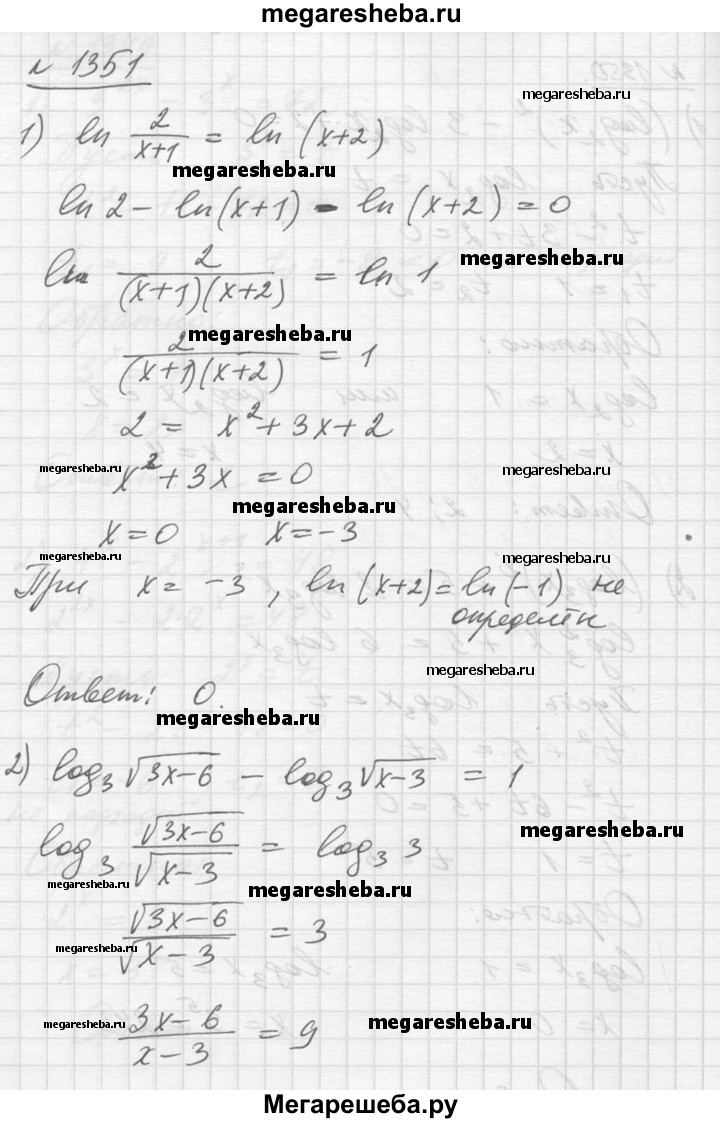 megaresheba.ru
№ 1351
megaresheba.ru
1) ln 2/(x+1) = ln (x+2)
megaresheba.ru
ln 2 - ln(x+1) - ln (x+2) = 0
megaresheba.ru
ln 2/((x+1)(x+2)) = ln 1
megaresheba.ru
2/((x+1)(x+2)) = 1
2 = x² + 3x + 2
megaresheba.ru
x² + 3x = 0
megaresheba.ru
megaresheba.ru
x = 0 x = -3
megaresheba.ru
megaresheba.ru
При x = -3, ln (x+2) = ln (-1) не
определён
megaresheba.ru
Ответ: 0.
megaresheba.ru
2) log₃ √(3x-6) - log₃ √(x-3) = 1
megaresheba.ru
log₃ √(3x-6)/√(x-3) = log₃ 3
megaresheba.ru
megaresheba.ru
√(3x-6)/√(x-3) = 3
megaresheba.ru
megaresheba.ru
(3x-6)/(x-3) = 9
megaresheba.ru
Мегарешеба.ру